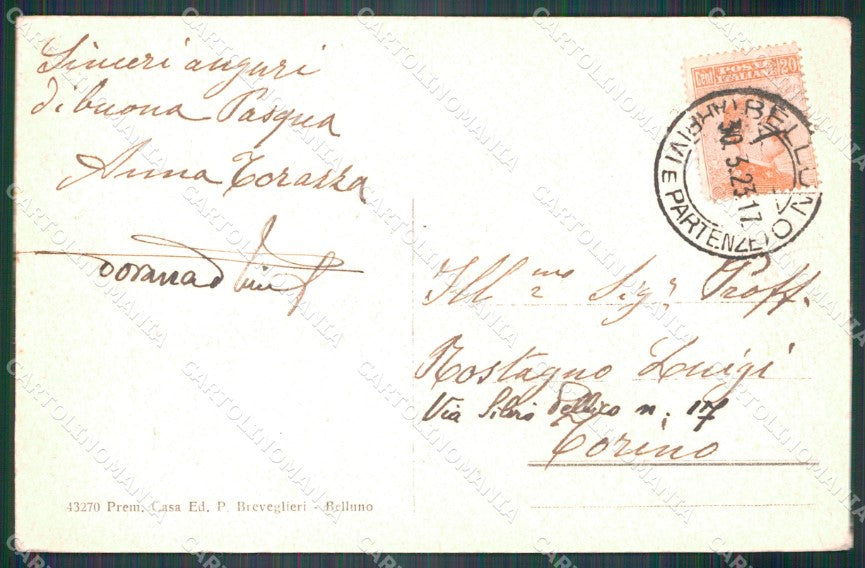 Sinceri auguri
di buona Pasqua
Anna Torazza
Cent 20
POSTE
ITALIANE
BELLUNO
(ARRIVI E PARTENZE)
30. 3. 23. 17
Ill mo Sigr Proff.
Rostagno Luigi
Via Silvio Pellico n. 17
Torino
43270 Prem. Casa Ed. P. Breveglieri - Belluno
CARTOLINOMANIA